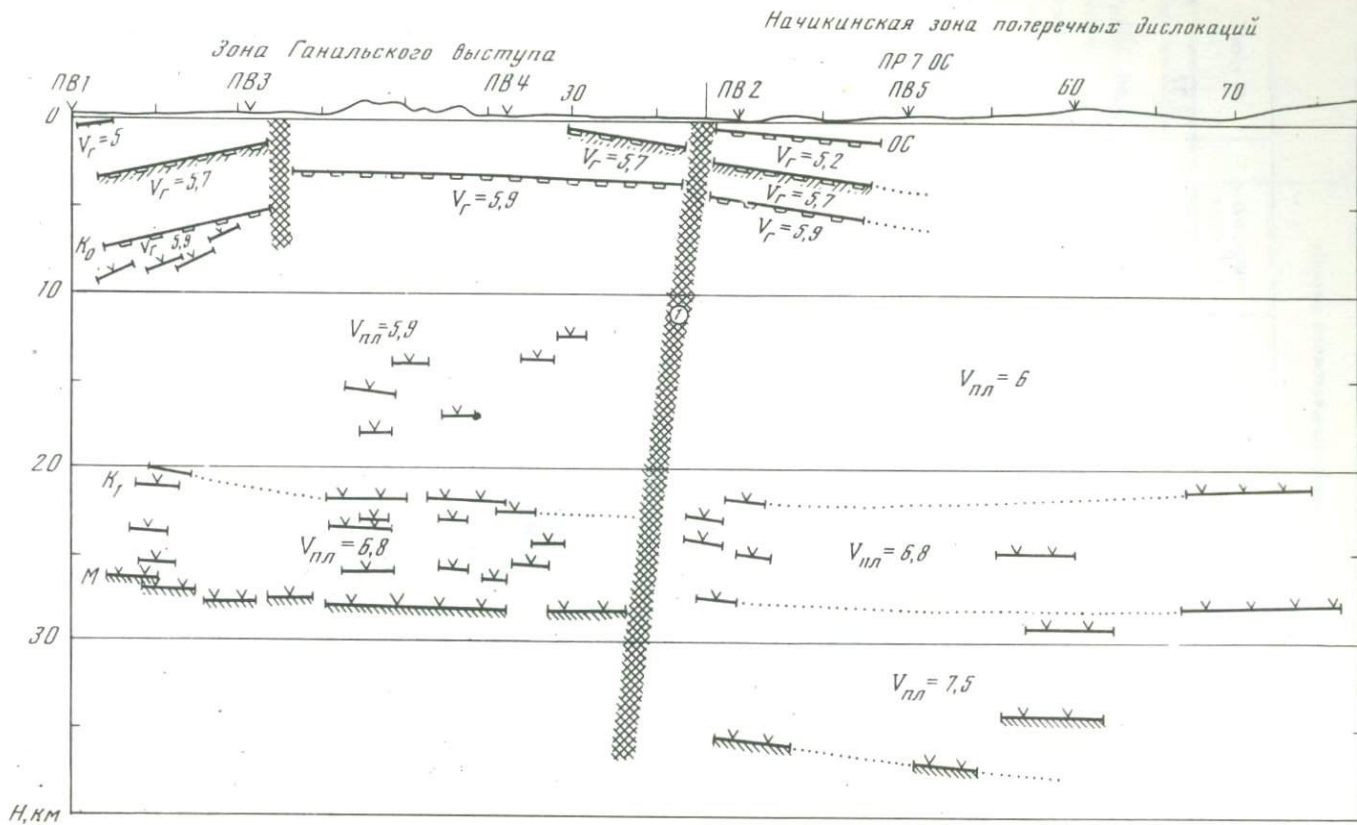 Начикинская зона поперечных дислокаций
Зона Ганальского выступа
ПР 7 ОС
ПВ1 ПВ3 ПВ4 30 ПВ2 ПВ5 60 70
0
Vг=5
Vг=5,7
Vг=5,2
ОС
Vг=5,7
Vг=5,9
Vг=5,7
K0
Vг 5,9
Vг=5,9
10
1
Vпл=5,9
Vпл=6
20
K1
Vпл=6,8
Vпл=6,8
М
30
Vпл=7,5
Н,км